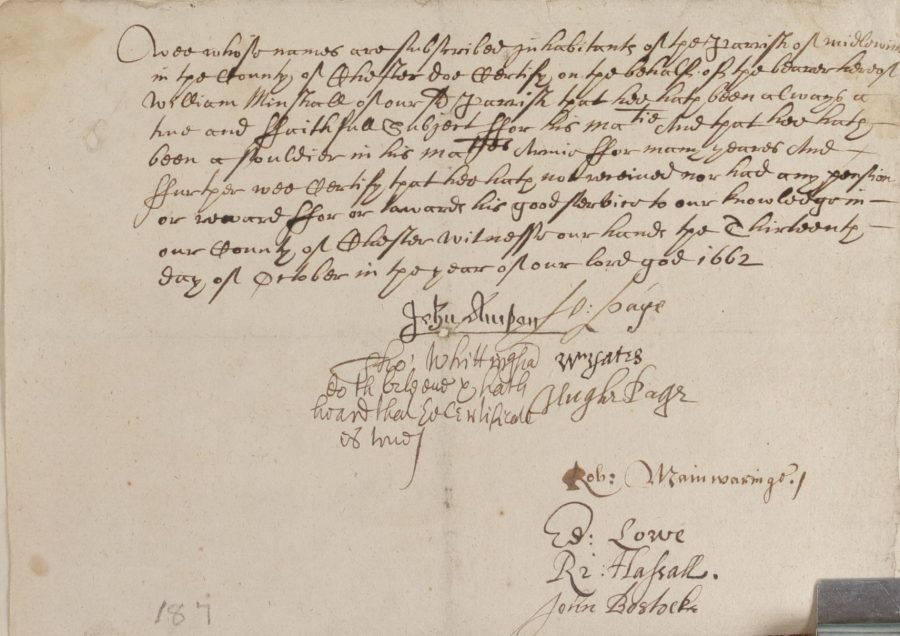 Wee whose names are subscribed Inhabitants of the Parrish of Midlewich
in the County of Chester doe Certify on the behalf of the bearer hereof
William Minshall of our sd Parrish that hee hath been always a
true and ffaithfull Subject ffor his matie And that hee hath
been a souldier in his maties Armie ffor many yeares And
ffurther wee Certify that hee hath not receiued nor had any pension
or reward ffor or towards his good service to our knowledge in
our County of Chester Witnesse our hands the Thirteenth
day of October in the year of our lord god 1662
John
Page
Tho: Whittingha Wm Yates
doth beleeue & hath Hugh Page
heard that ye Certificate
es true
Rob: Mainwaringe
Ed: Lowe
Ri: Hassall.
John Bostocke
187